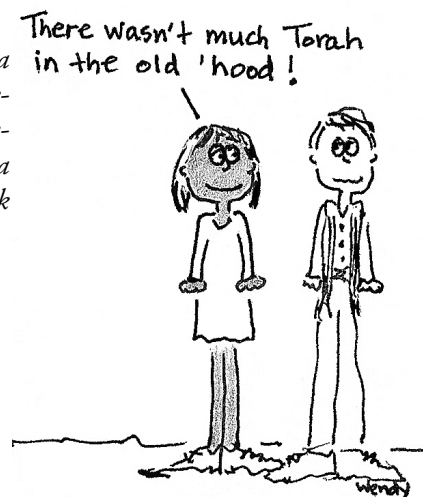 There wasn't much Torah
in the old 'hood!
a
-
-
a
k
wendy